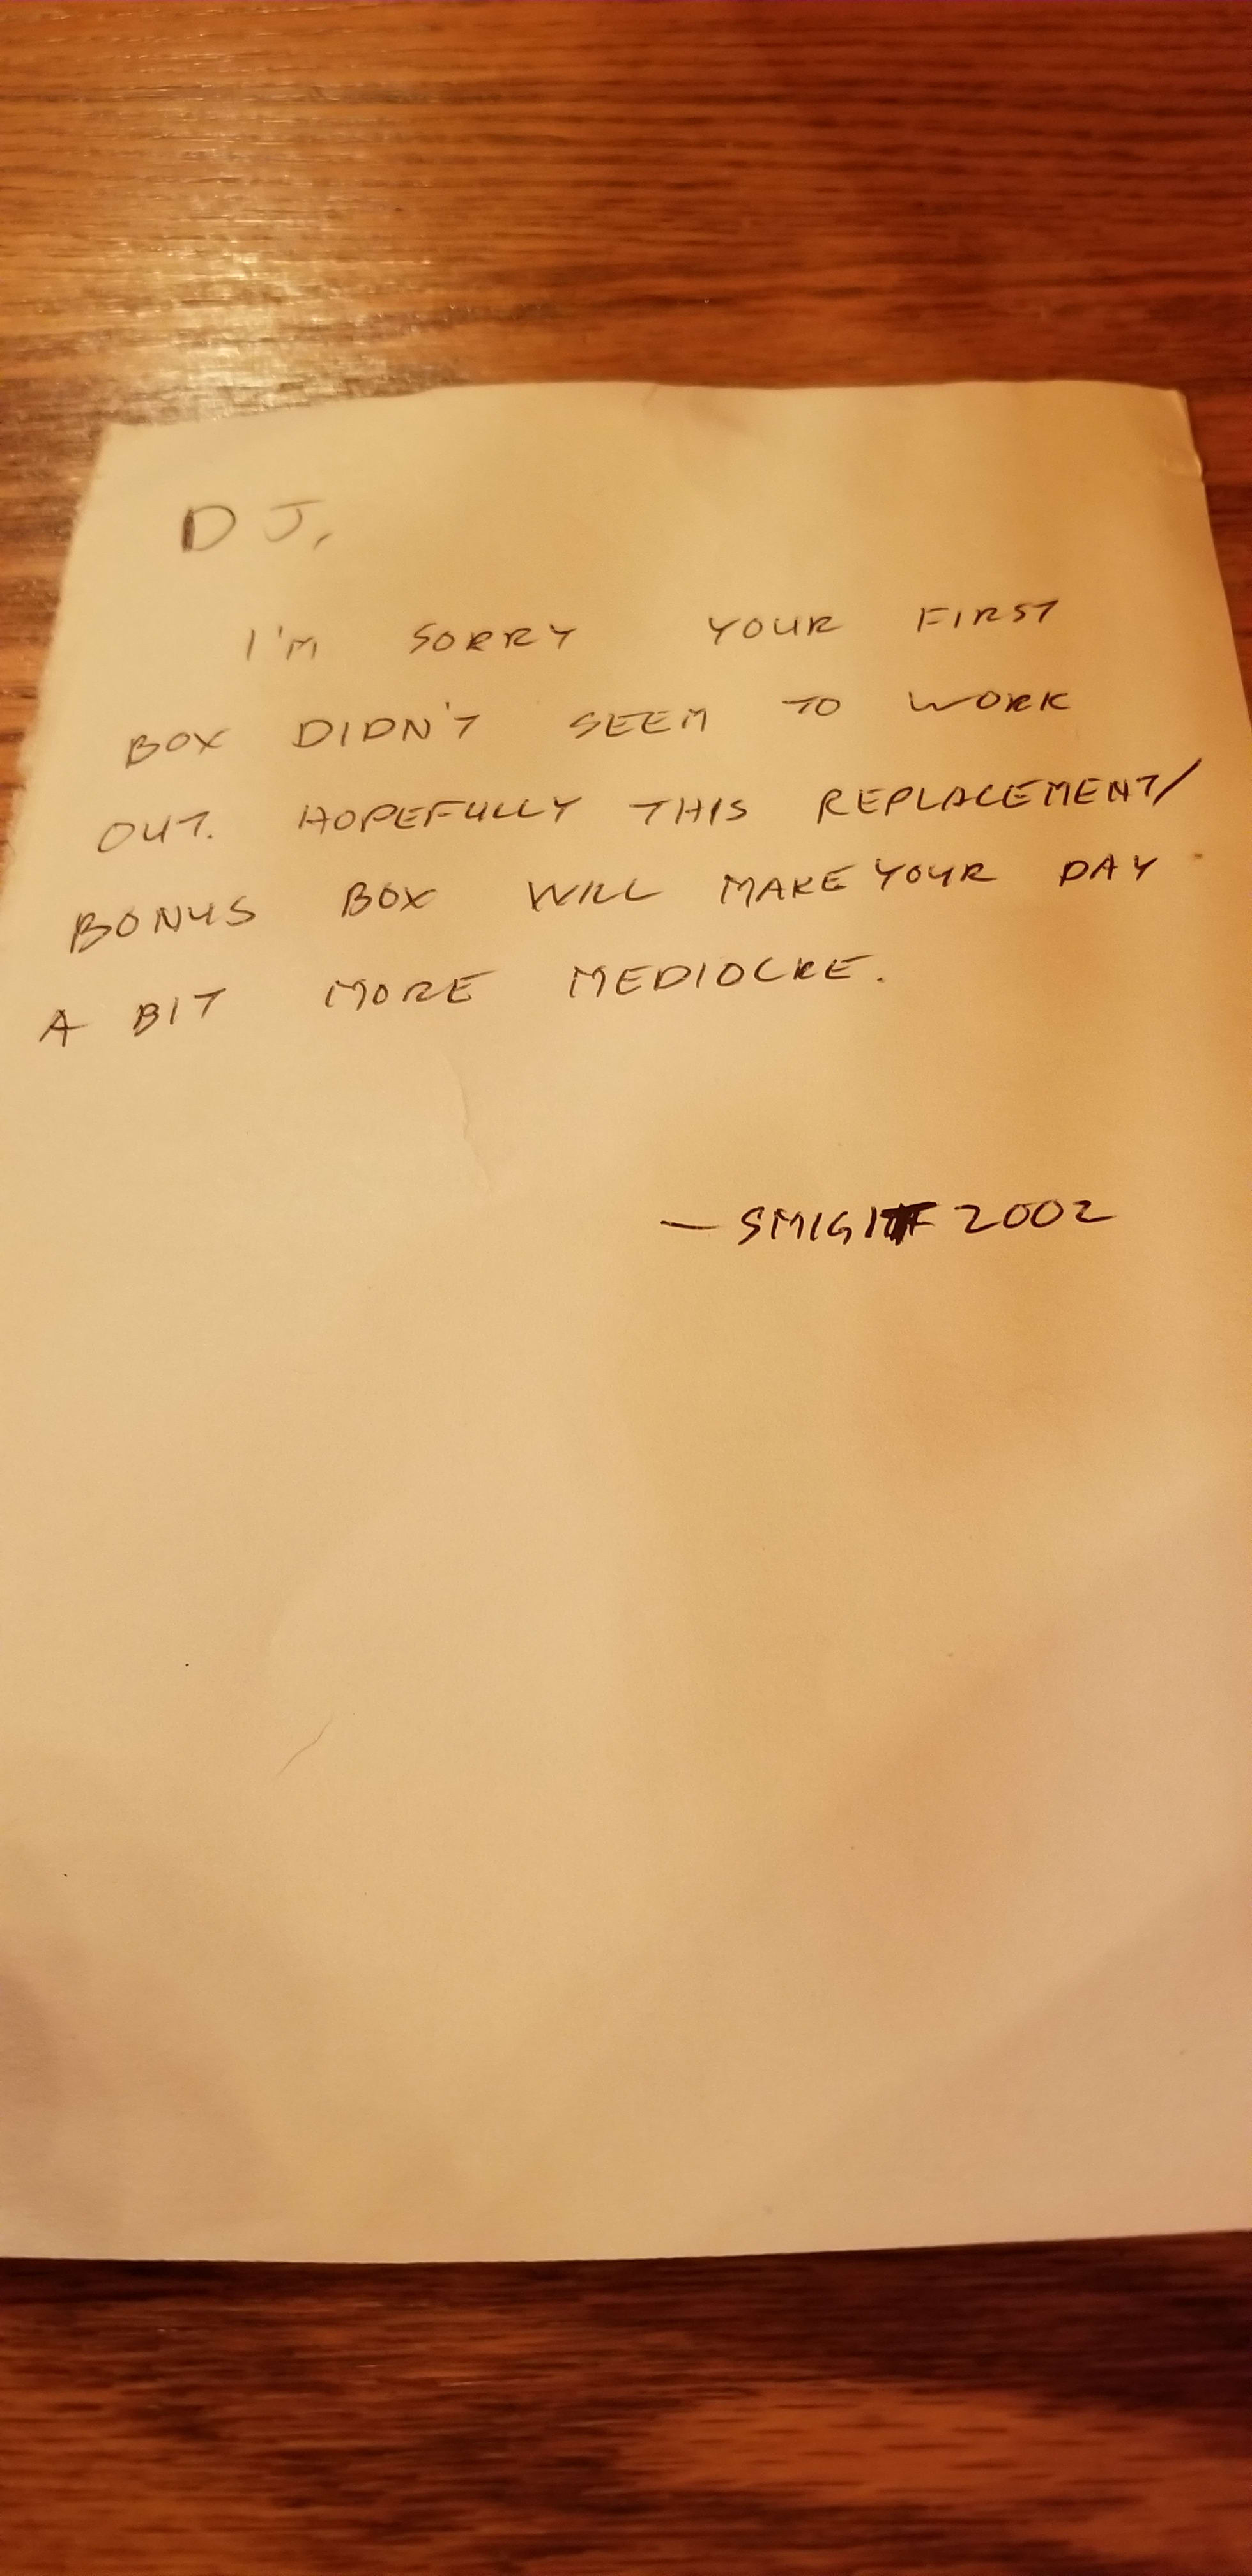 DJ,
I'M SORRY YOUR FIRST
BOX DIDN'T SEEM TO WORK
OUT. HOPEFULLY THIS REPLACEMENT/
BONUS BOX WILL MAKE YOUR DAY
A BIT MORE MEDIOCRE.
— 2002